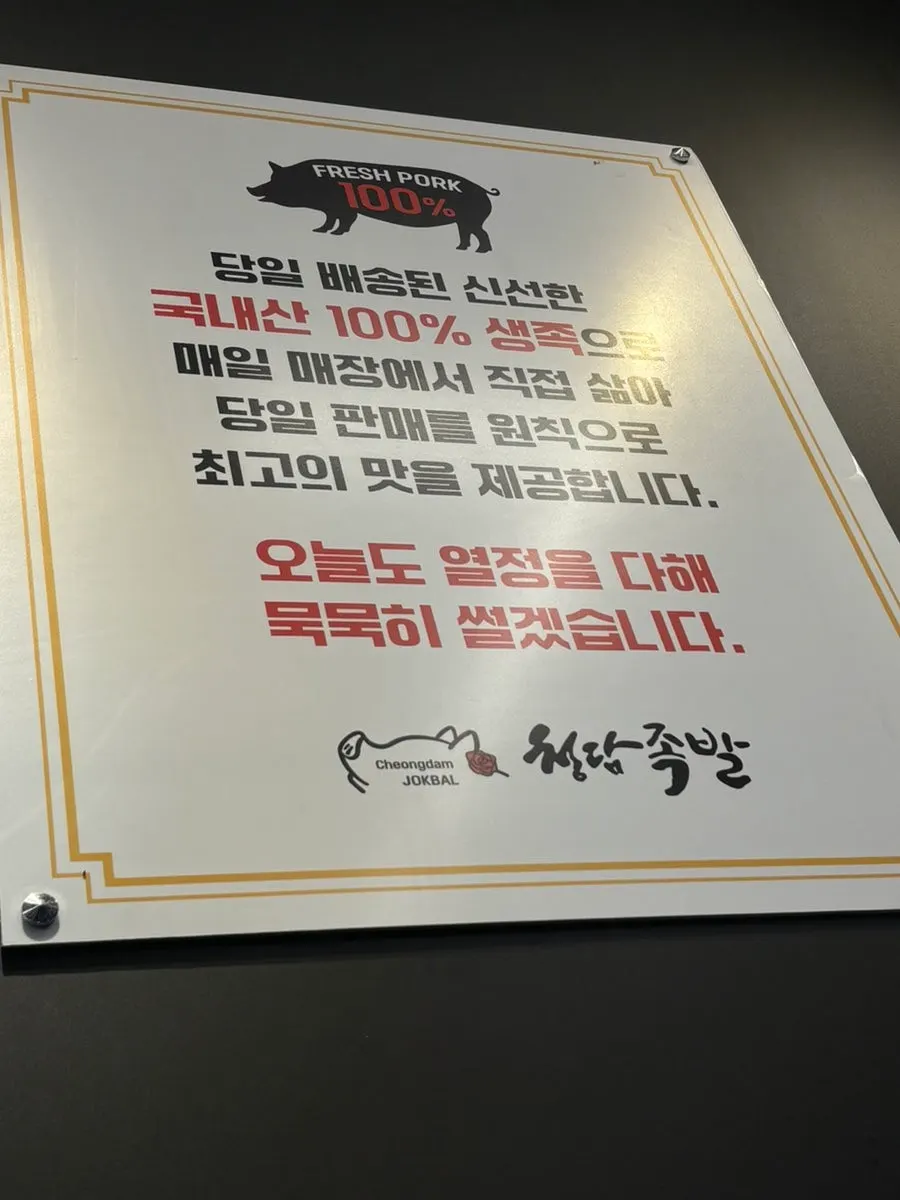 FRESH PORK
100%
당일 배송된 신선한
국내산 100% 생족으로
매일 매장에서 직접 삶아
당일 판매를 원칙으로
최고의 맛을 제공합니다.
오늘도 열정을 다해
묵묵히 썰겠습니다.
Cheongdam
JOKBAL
청담족발